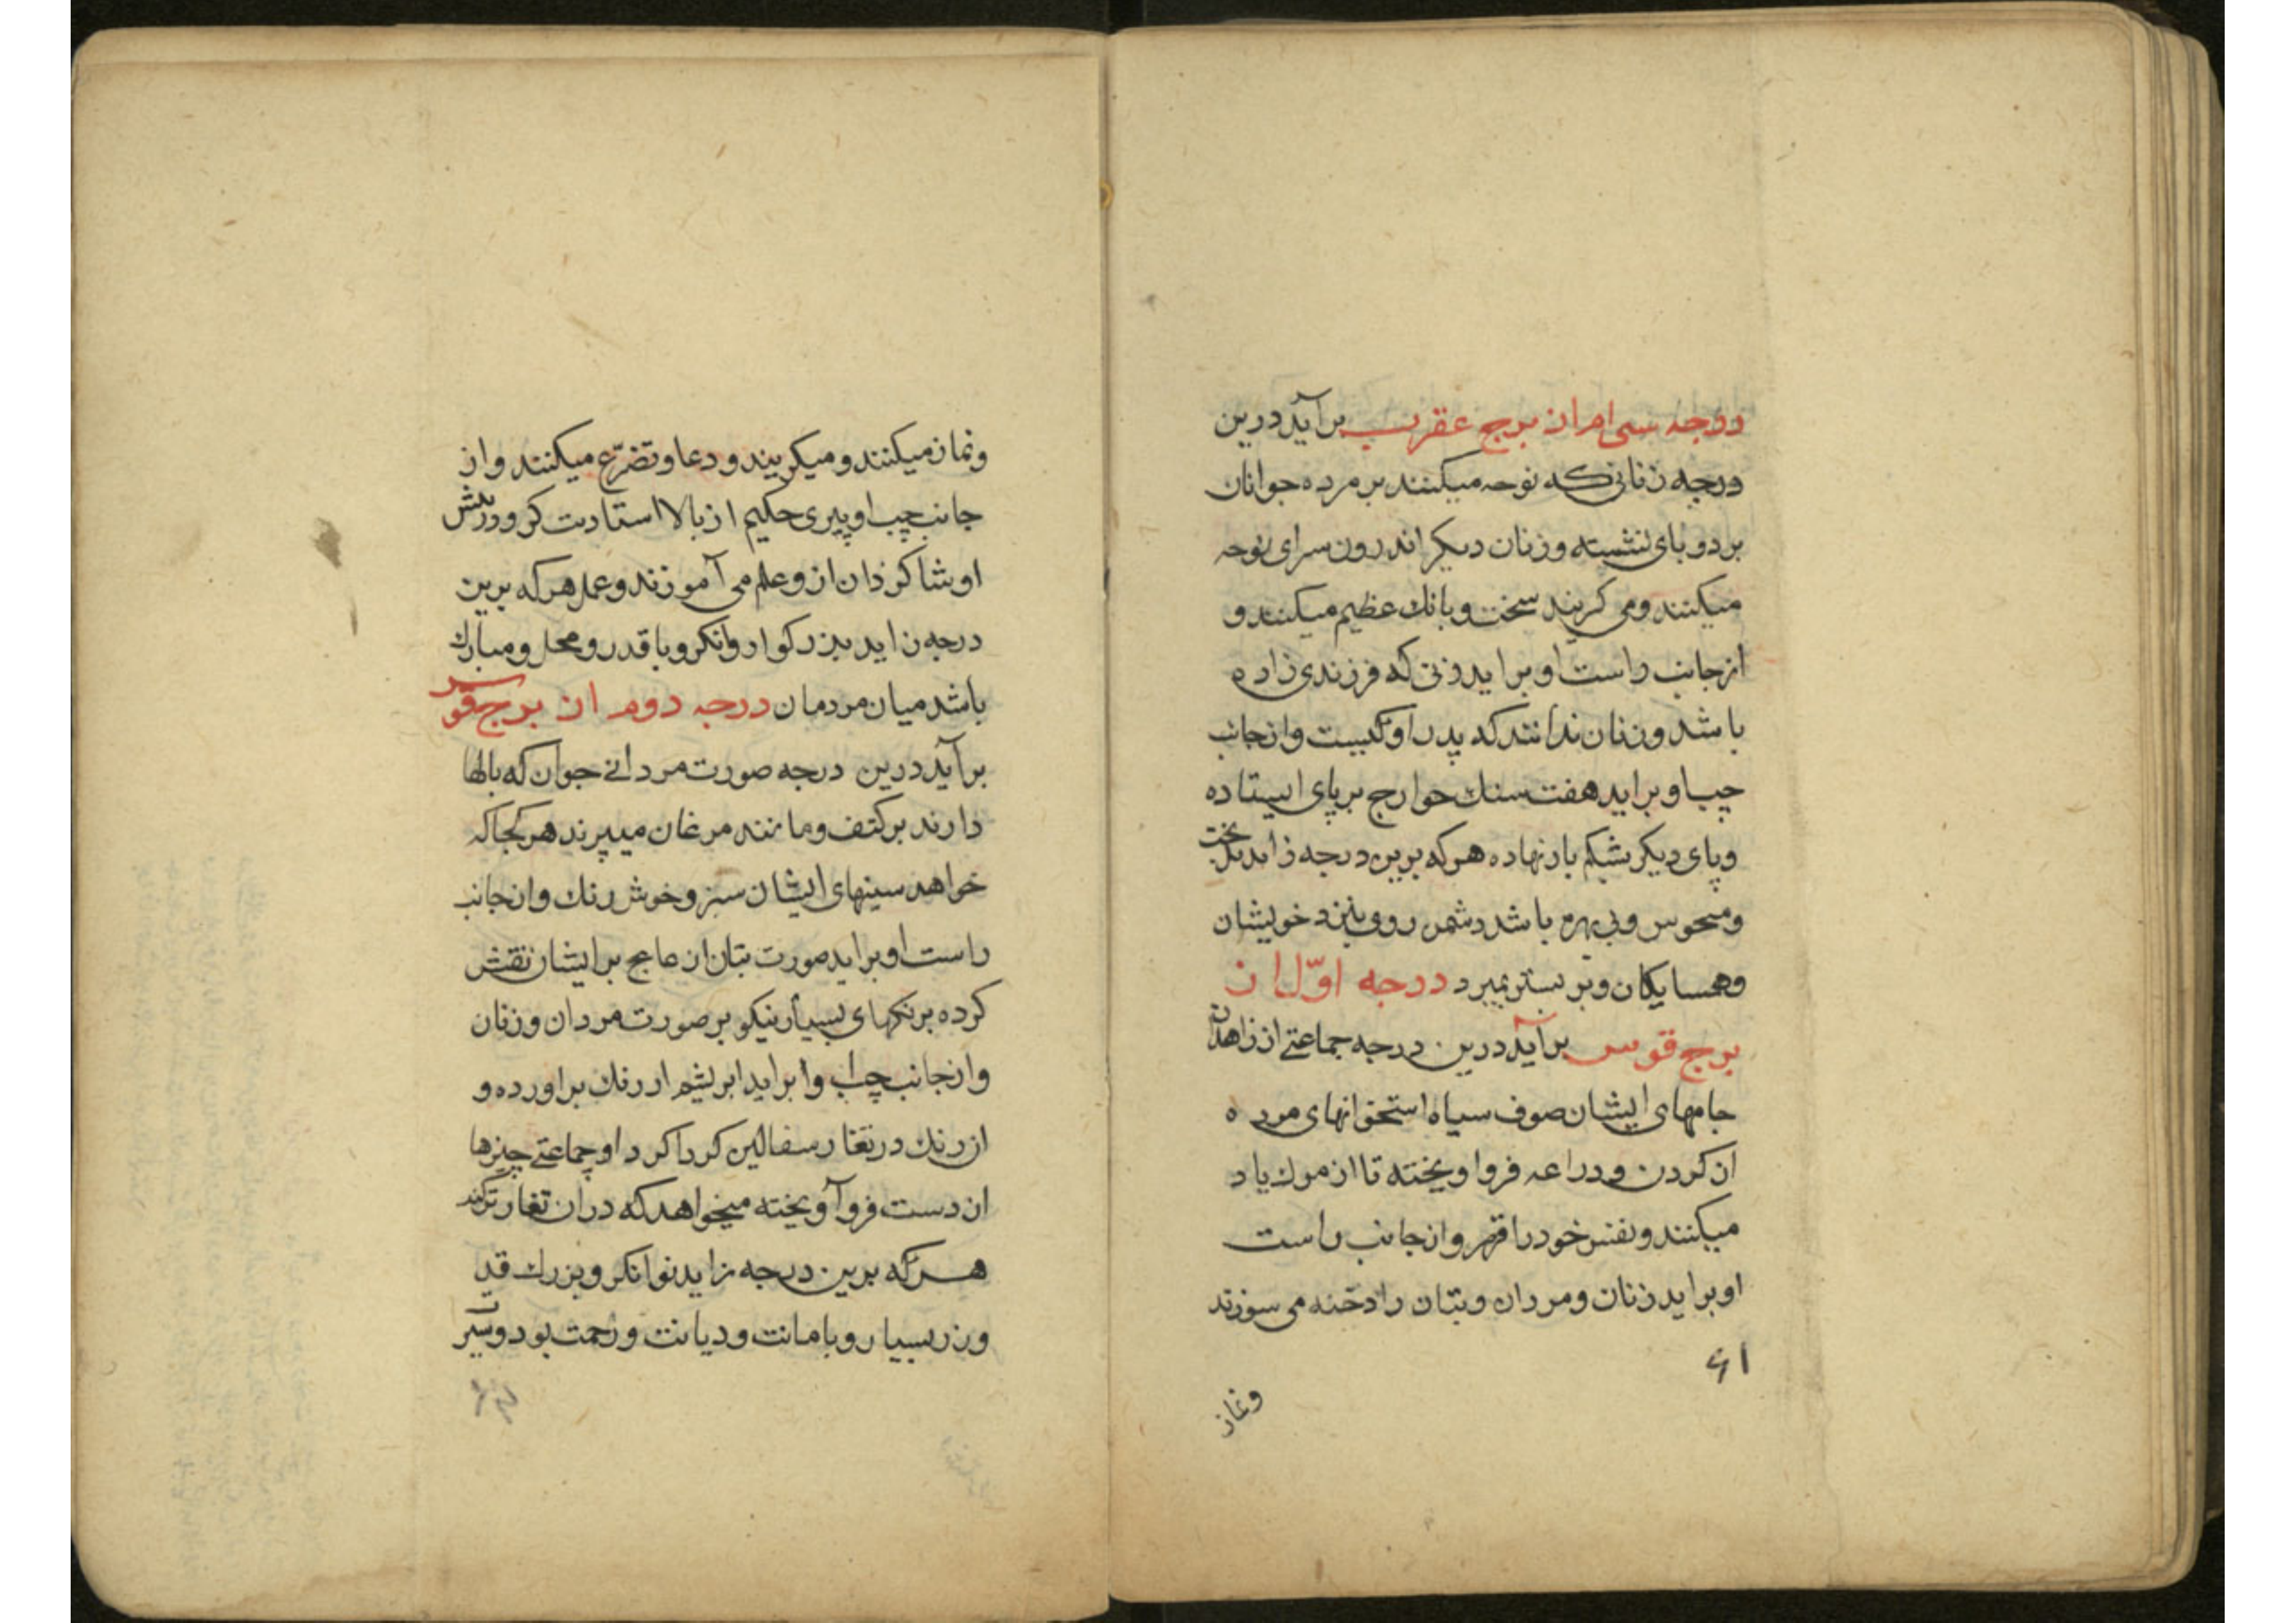 درجه سی ام از برج عقرب برآید درین
درجه زنانی که نوحه میکنند بر مرده جوانان
بر دو بای نشسته و زنان دیکر اندرون سرای نوحه
میکنند و می کریند سخت و بانك عظیم میکنند و
از جانب راست او براید زنی که فرزندی زاده
باشد و زنان ندانند که پدر او کیست و از جانب
چپ او براید هفت سنك خوارج بر پای ایستاده
و پای دیکر بشکم باز نهاده هر که برین درجه زاید بدبخت
و منحوس و بی بهره باشد دشمن روی بنزد خویشان
و همسایکان و بر بستر بمیرد درجه اوّل از
برج قوس برآید درین درجه جماعتے از زاهدان
جامهای ایشان صوف سیاه استخوانهای مرده
از کردن و دراعه فرو اویخته تا از موك یاد
میکنند و نفس خود را قهر و از جانب راست
او براید زنان و مردان و بتان را دخنه می سوزند
۶۱
ونماز
ونماز میکنند و میکریند و دعا و تضرّع میکنند و از
جانب چپ او پیری حکیم از بالا استادت کر و در پیش
او شاکردان از و علم می آموزند و عمل هر که برین
درجه زاید بزرکوار و توانکر و با قدر و محل و مبارك
باشد میان مردمان درجه دوم از برج قوس
برآید درین درجه صورت مردانے جوان که بالها
دارند بر کتف و مانند مرغان میپرند هر کجا که
خواهد سینهای ایشان سبز و خوش رنك و از جانب
راست او براید صورت بتان از عاج بر ایشان نقش
کرده برنکهای بسیار نیکو بر صورت مردان و زنان
و از جانب چپ او براید ابریشم از رنك براورده و
از رنك در تغار سفالین کرداکرد او جماعتے چیزها
از دست فرو آویخته میخواهد که در ان تغار ترکند
هر که برین درجه زاید توانکر و بزرك قد
و زر بسیار و بامانت و دیانت و رحمت بود و سیر